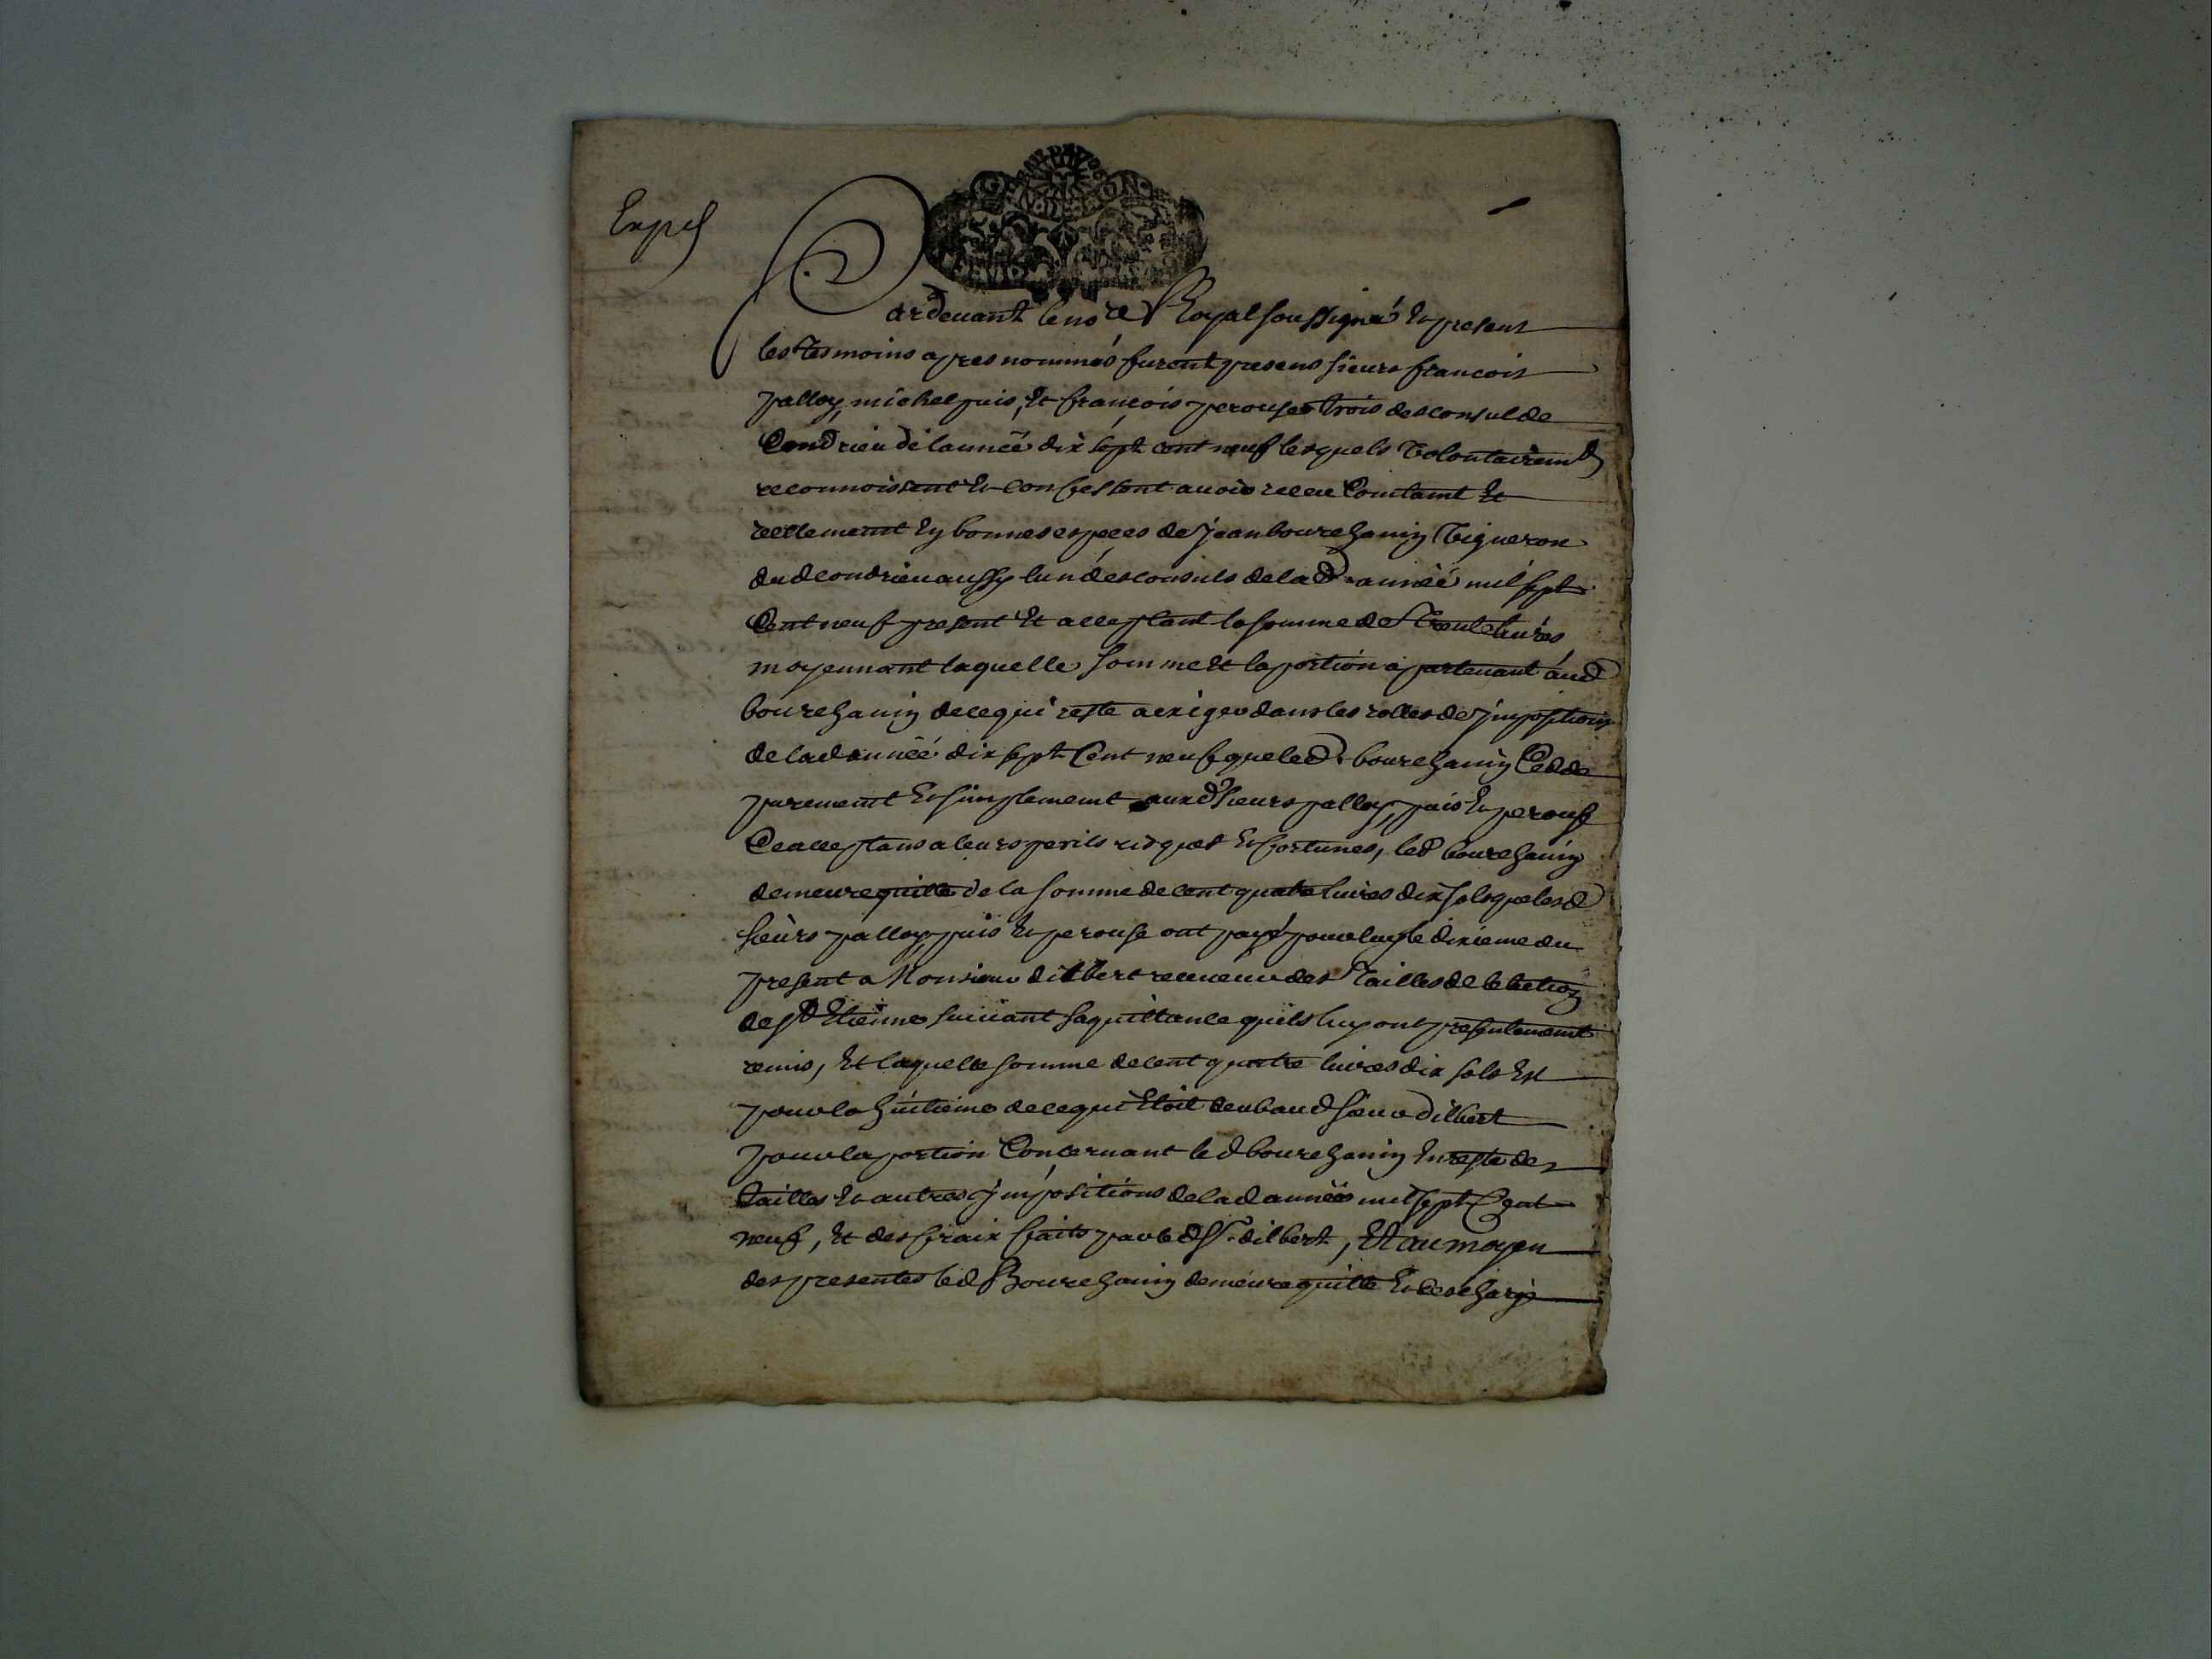 Expé
Pardevant le no.re Royal soussigné Et present
les Tesmoins apres nommés furent presens sieurs francois
palloy, michel puis, Et francois perouse trois des consul de
Condrieu de l'année dix sept cent neuf lesquels Volontairem.t
reconnoissent Et confessent avoir receu Comtamt Et
reellement En bonnes especes de Jean bourchanin Vigneron
dud condrieu aussy lun des consuls de lad année mil sept
Cent neuf present Et acceptant la somme de Trente livres
moyennant laquelle somme Et la portion apartenant aud
bourchanin de ce qui reste a exiger dans les rolles de Jmposition
de lad année dix sept Cent neuf que led bourchanin Cedde
purement Et simplement auxd sieurs palloy, puis Et perouse
Ce acceptans a leurs perils risques Et fortunes, led bourchanin
demeure quitte de la somme de cent quatre livres dix sols que lesd
sieurs palloy puis Et perouse ont payé pour luy le dixieme du
present a Monsieur dilbert receveur des Tailles de lelection
de St Etienne suivant la quittance quils luy ont presentement
remis, Et laquelle somme de cent quatre livres dix sols Est
pour la huitieme de ce qui Etoit deub aud sieur dilbert
pour la portion Concernant led bourchanin En reste des
tailles Et autres Jmpositions de lad année mil sept Cent
neuf, Et des fraix faits par led Sr dilbert, Et au moyen
des presentes led Bourchanin demeure quitte Et deschargé